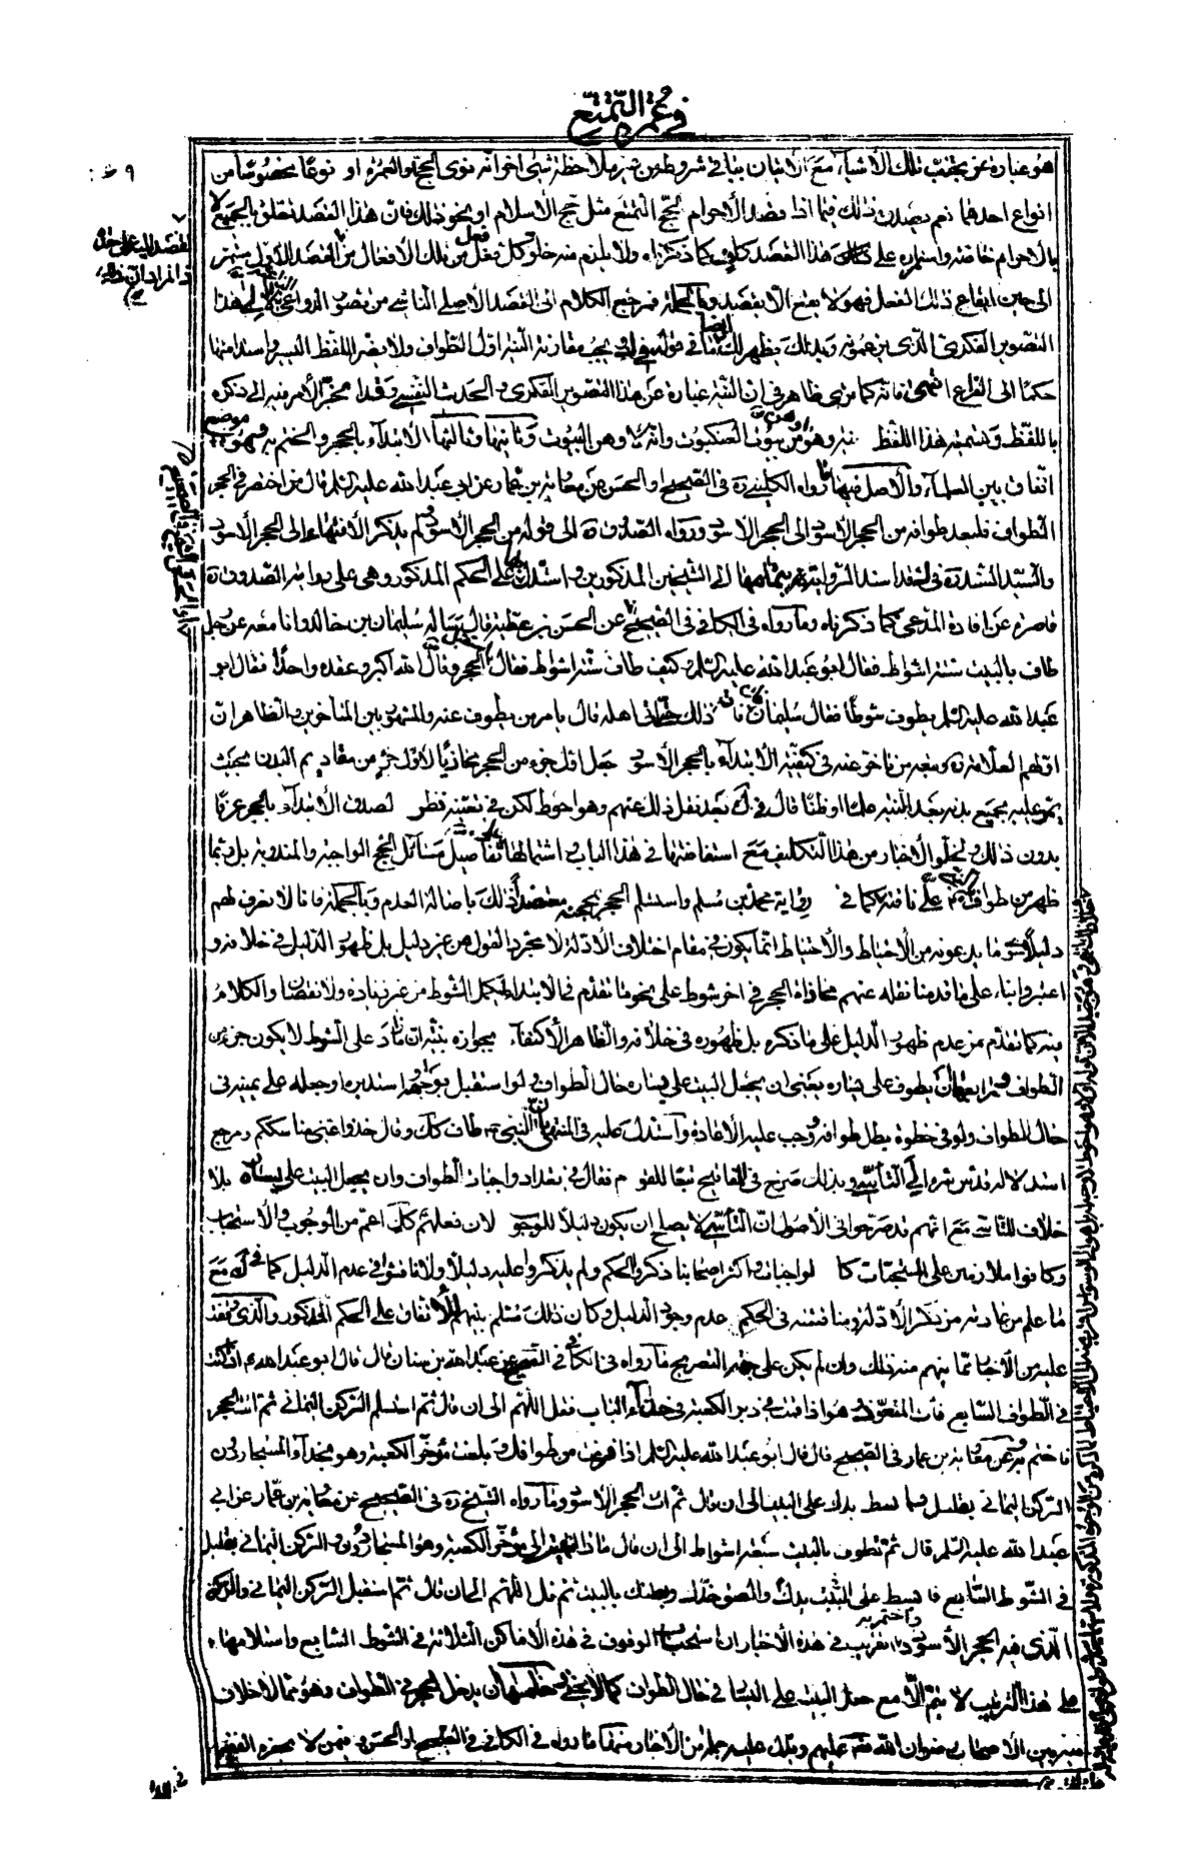 في عمرة التمتع
هو عبارة عن تجنب تلك الأشياء مع الاتيان بباقي شروطه من غير ملاحظة شيء اخر انه نوى الحج او العمرة او نوعا مخصوصا من
انواع احدهما نعم يصدق ذلك فيما اذا قصد الاحرام لحج التمتع مثل حج الاسلام او نحو ذلك فان هذا القصد تعلق بالجميع لا
بالاحرام خاصة واستمراره على هذا القصد كاف كما ذكرناه ولا يلزم منه خلو كل فعل من تلك الافعال من القصد الأول مستمر
الى حين ايقاع ذلك الفعل فهو لا يقع الا بقصد وبالجملة فمرجع الكلام الى القصد الاصلي الناشي من تصور الدواعي لا الى هذا
التصوير الفكري الذي يزعمونه وبذلك يظهر لك ايضا ما في قوله في يجب مقارنة النية اول الطواف ولا يضر اللفظ اليسير واسناد منها
حكما الى الفراغ انتهى فانه كما ترى ظاهر في ان النية عبارة عن هذا التصوير الفكري والحديث النفسي وقد انجر الأمر فيه الى ذكره
باللفظ وتسمية هذا اللفظ نية وهو اوهن من بيوت العنكبوت وانه لأوهن البيوت وثانيها وثالثها الابتداء بالحجر والختم به وهو موضع
اتفاق بين العلماء والأصل فيهما ما رواه الكليني ره في الصحيح او الحسن عن معاوية بن عمار عن ابي عبد الله عليه السلم قال من اختصر في الحجر
الطواف فليعد طوافه من الحجر الأسود الى الحجر الأسود ورواه الصدوق ره الى قوله من الحجر الأسود ولم يذكر الانتهاء الى الحجر الأسود
والسيد السند ره في اسند الرواية بتمامها الى الشيخين المذكورين واستدل بها على الحكم المذكور وهي على رواية الصدوق ره
قاصرة عن افادة المدعى كما ذكرناه وما رواه في الكافي في الصحيح عن الحسن بن عطية قال سأله سليمان بن خالد وانا معه عن رجل
طاف بالبيت ستة اشواط فقال ابو عبد الله عليه السلم وكيف طاف ستة اشواط فقال استقبل الحجر وقال الله اكبر وعقد واحدا فقال ابو
عبد الله عليه السلم يطوف شوطا فقال سليمان فان فاته ذلك حتى اتى اهله قال يأمر من يطوف عنه والمشهور بين المتأخرين والظاهر ان
اولهم العلامة ره وتبعه من تأخر عنه في كيفية الابتداء بالحجر الأسود جعل اول جزء من الحجر محاذيا لاول جزء من مقاديم البدن بحيث
يمر عليه بجميع بدنه بعد النية علما او ظنا قال في ك بعد نقل ذلك عنهم وهو احوط لكن في تعينه نظر لصدق الابتداء بالحجر عرفا
بدون ذلك ولخلو الأخبار من هذا التكليف مع استفاضتها في هذا الباب واشتمالها على تفاصيل مسائل الحج الواجبة والمندوبة بل ربما
ظهر من طواف النبي ص على ناقته كما في رواية محمد بن مسلم واستلم الحجر بمحجنه معتضدا ذلك باصالة العدم وبالجملة فانا لا نعرف لهم
دليلا سوى ما يدعونه من الاحتياط والاحتياط انما يكون في مقام اختلاف الأدلة لا بمجرد القول من غير دليل بل ظهور الدليل في خلافه و
اعتبروا بناء على ما قدمنا نقله عنهم محاذاة الحجر في اخر شوط على نحو ما تقدم في الابتداء ليكمل الشوط من غير زيادة ولا نقصان والكلام
فيه كما تقدم من عدم ظهور الدليل على ما ذكروه بل ظهوره في خلافه والظاهر الاكتفاء بتجاوزه بنية ان ما زاد على الشوط لا يكون جزء من
الطواف ورابعها ان يطوف على يساره بمعنى ان يجعل البيت على يساره حال الطواف ولو استقبل بوجهه او استدبره او جعله على يمينه في
حال الطواف ولو في خطوة يطل طوافه ووجب عليه الاعادة واستدل عليه في المنتهى بان النبي ص طاف كذلك وقال خذوا عني مناسككم ومرجع
استدلاله قدس سره الى التأسي وبذلك صرح في المفاتيح تبعا للقوم فقال في تعداد واجبات الطواف وان يجعل البيت على يساره بلا
خلاف للتاسي مع انهم قد صرحوا في الأصول ان التأسي لا يصلح ان يكون دليلا للوجوب لان فعلهم ع اعم من الوجوب والاستحباب
وكانوا ملازمين على المستحبات كالواجبات واكثر اصحابنا ذكروا الحكم ولم يذكروا عليه دليلا ولا ناقشوا في عدم الدليل كما في ك مع
ما علم من عادته من ذكر الأدلة ومناقشته في الحكم عدم وجود الدليل وكان ذلك مسلم بينهم الاتفاق على الحكم المذكور والذي يعتمد
عليه من الأخبار مما يفهم منه ذلك وان لم يكن على جهة التصريح ما رواه في الكافي في الصحيح عن عبد الله بن سنان قال قال ابو عبد الله ع اذا كنت
في الطواف السابع فأت المتعوذ وهو اذا قمت في دبر الكعبة في حذاء الباب فقل اللهم الى ان قال ثم استلم الركن اليماني ثم ائت الحجر
فاختم به وعن معاوية بن عمار في الصحيح قال قال ابو عبد الله عليه السلم اذا فرغت من طوافك وبلغت مؤخر الكعبة وهو بحذاء المستجار دون
الركن اليماني بقليل فابسط يدك على البيت الى ان قال ثم ائت الحجر الأسود وما رواه الشيخ ره في الصحيح عن معاوية بن عمار عن ابي
عبد الله عليه السلم قال ثم تطوف بالبيت سبعة اشواط الى ان قال فاذا انتهيت الى مؤخر الكعبة وهو المستجار دون الركن اليماني بقليل
في الشوط السابع فابسط على البيت يدك والصق خدك وبطنك بالبيت ثم قل اللهم الى ان قال ثم استقبل الركن اليماني والركن
الذي فيه الحجر الأسود واختم به والتقريب في هذه الأخبار ان استحباب الوقوف في هذه الأماكن الثلاثة في الشوط السابع واستلامها
على هذا الترتيب لا يتم الا مع جعل البيت على اليسار في حال الطواف كما لا يخفى وخامسها ان يدخل الحجر في الطواف وهو مما لا خلاف
فيه بين الأصحاب رضوان الله عليهم ويدل عليه جملة من الأخبار منها ما رواه في الكافي في الصحيح او الحسن فيمن لا يحضره الفقيه